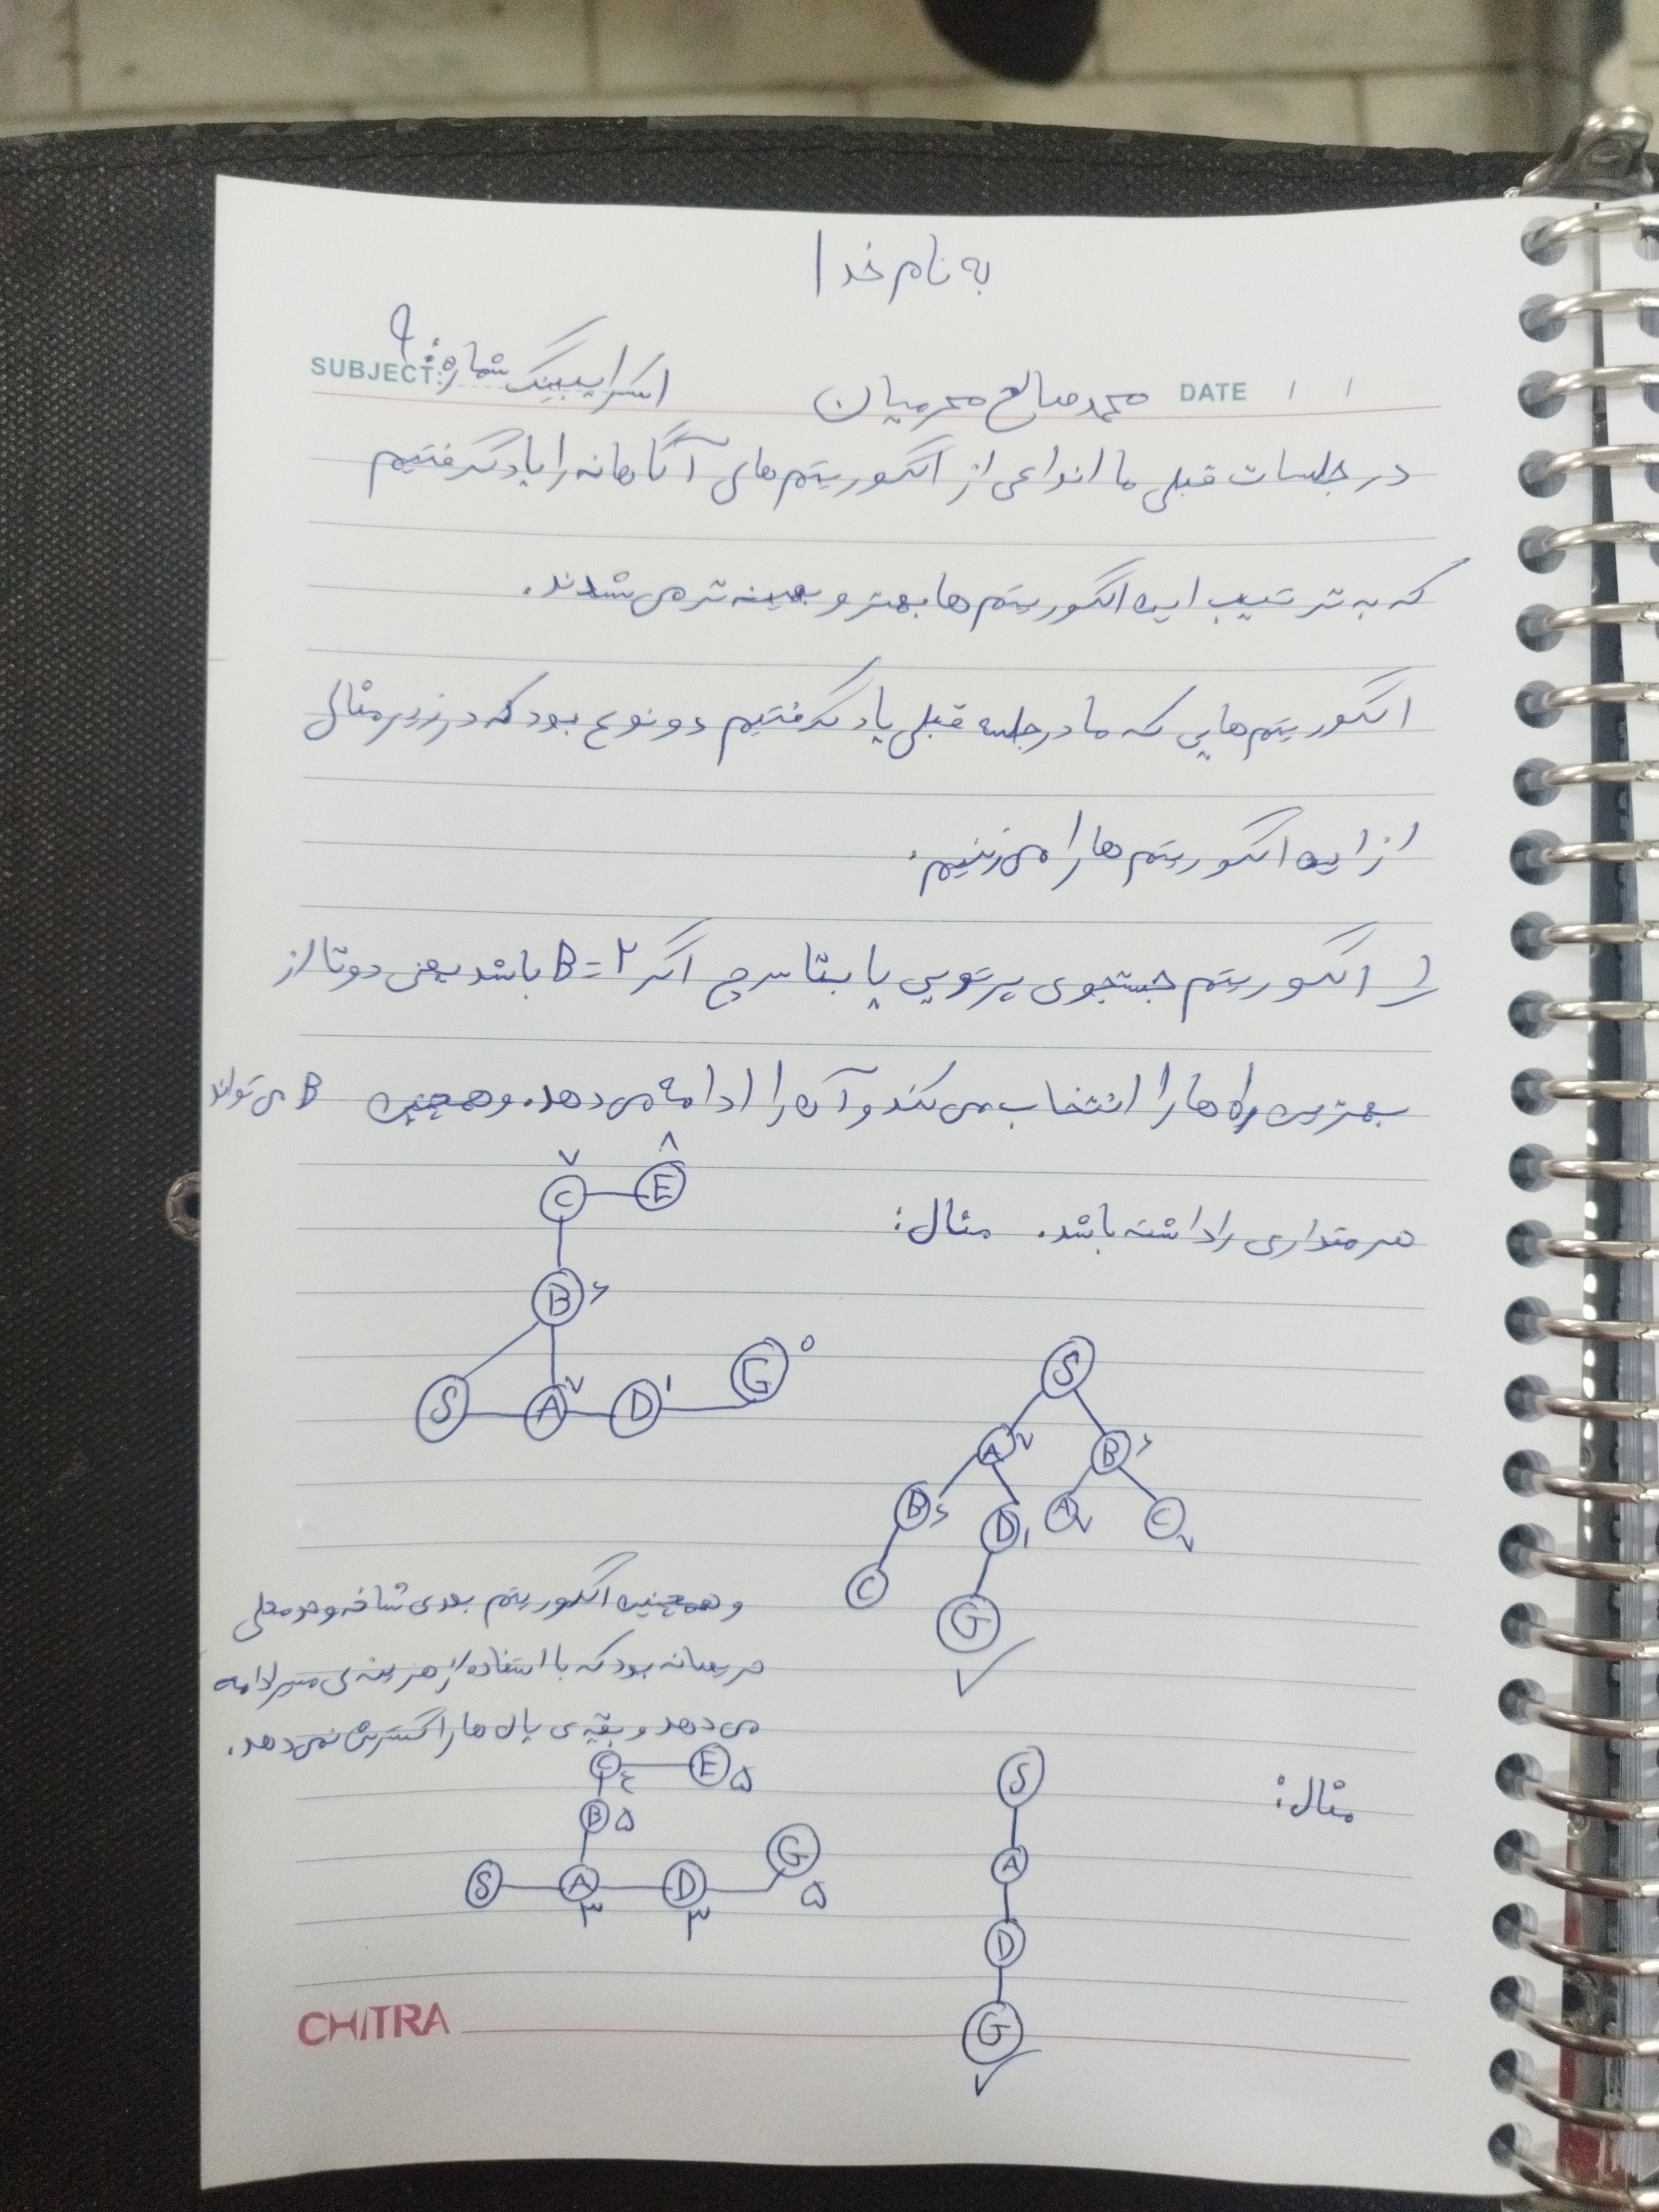 به نام خدا
SUBJECT: اسکرایبینگ شماره: ۹
محمدصالح محرمیان DATE / /
در جلسات قبلی ما انواعی از الگوریتم های آگاهانه را یاد گرفتیم
که به ترتیب این الگوریتم ها بهتر و بهینه تر می شدند.
الگوریتم هایی که ما در جلسه قبلی یاد گرفتیم دو نوع بود که در زیر مثال
از این الگوریتم ها را می زنیم.
۱) الگوریتم جستجوی پرتویی یا بتا سرچ اگر B=۲ باشد یعنی دوتا از
بهترین راه ها را انتخاب می کند و آن را ادامه می دهد. و همچنین B می تواند
هر مقداری را داشته باشد. مثال:
C ۷ E ۸
B ۶
S A ۷ D ۱ G ۰
S
A ۷ B ۶
B ۶ D ۱ A ۷ C ۷
C G
و همچنین الگوریتم بعدی شاخه و حد محلی
حریصانه بود که با استفاده از هزینه ی مسیر ادامه
می دهد و بقیه ی یال ها را گسترش نمی دهد.
مثال:
C ۴ E ۵
B ۵
S A ۳ D ۳ G ۵
S
A
D
G
CHITRA